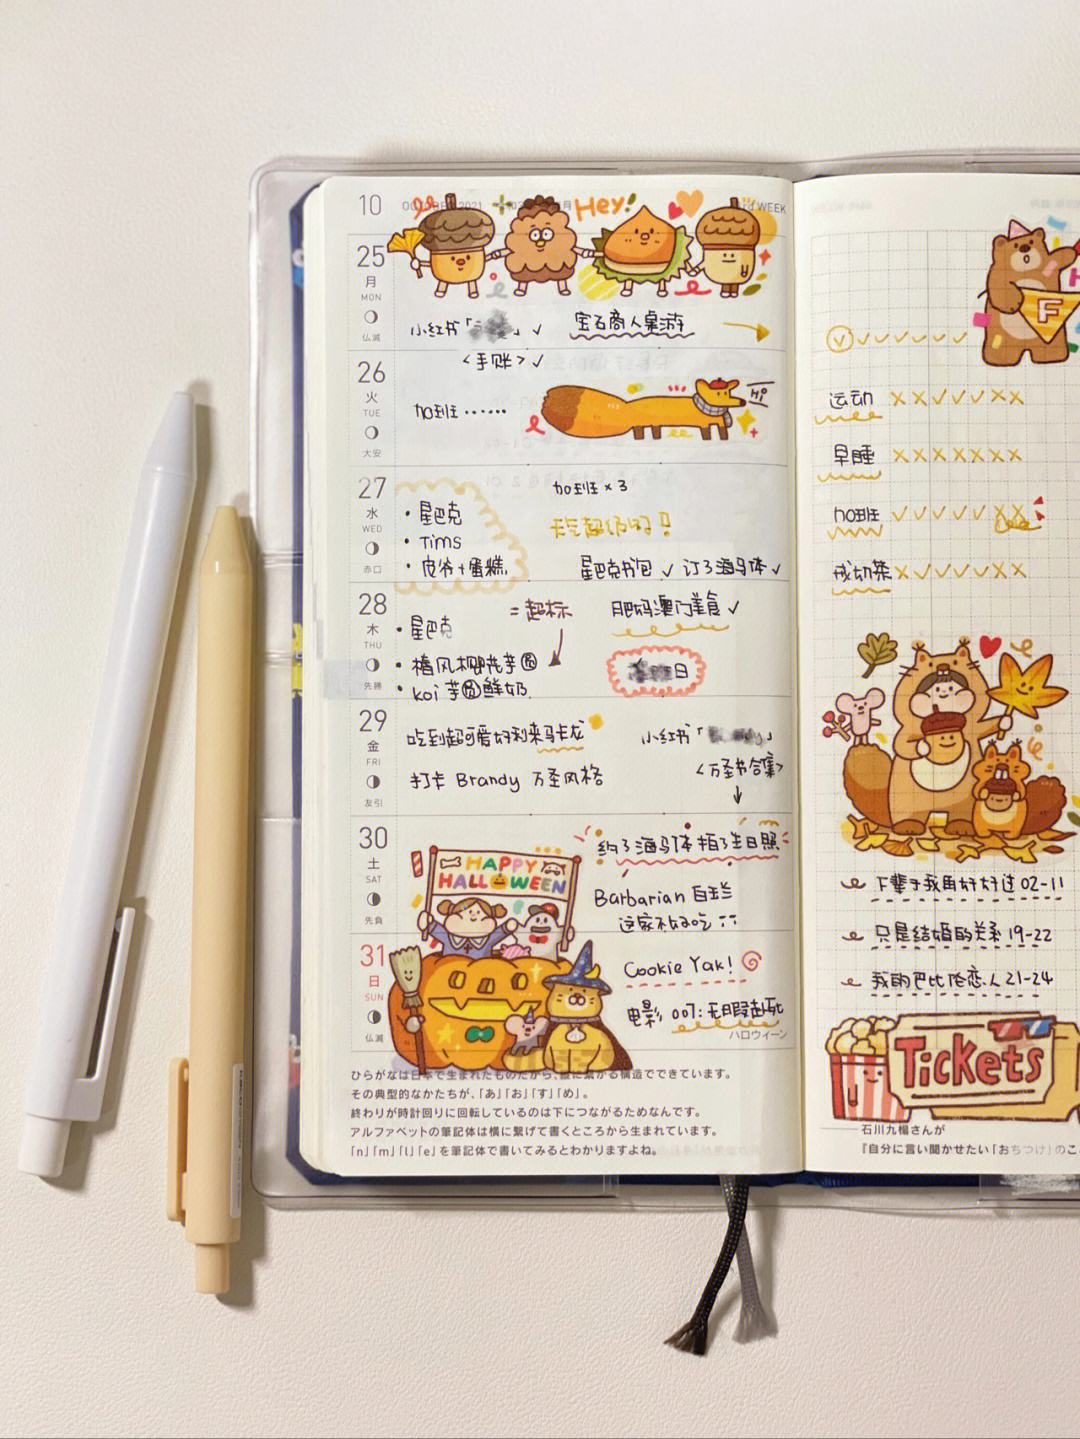 10
Hey!
WEEK
25
月
MON
仏滅
小红书「
」✓
宝石商人桌游
<手账>✓
26
火
TUE
大安
加班……
Hi
27
水
WED
赤口
加班×3
• 星巴克
• Tims
• 皮爷+蛋糕
星巴克书包 ✓ 订了海马体 ✓
28
木
THU
先勝
=超标
• 星巴克
肥妈澳门美食 ✓
• 椿风 芋圆
日
• koi 芋圆鲜奶
29
金
FRI
友引
吃到超可爱好利来马卡龙
小红书「
」
打卡 Brandy 万圣风格
<万圣书合集>
30
土
SAT
先負
HAPPY
HALLOWEEN
约了海马体拍了生日照
Barbarian 白玉兰
这家不好吃
31
日
SUN
仏滅
Cookie Yak!
电影 007:无暇赴死
ハロウィーン
ひらがなは日本で生まれたものだから、縦に繋がる構造でできています。
その典型的なかたちが、「あ」「お」「す」「め」。
終わりが時計回りに回転しているのは下につながるためなんです。
アルファベットの筆記体は横に繋げて書くところから生まれています。
「n」「m」「l」「e」を筆記体で書いてみるとわかりますよね。
F
✓ ✓ ✓ ✓ ✓ ✓ ✓
运动 × × ✓ ✓ ✓ × ×
早睡 × × × × × × ×
加班 ✓ ✓ ✓ ✓ ✓ × ×
戒奶茶 × ✓ ✓ ✓ ✓ × ×
下辈子我再好好过 02-11
只是结婚的关系 19-22
我的巴比伦恋人 21-24
Tickets
石川九楊さんが
『自分に言い聞かせたい「おちつけ」のこ